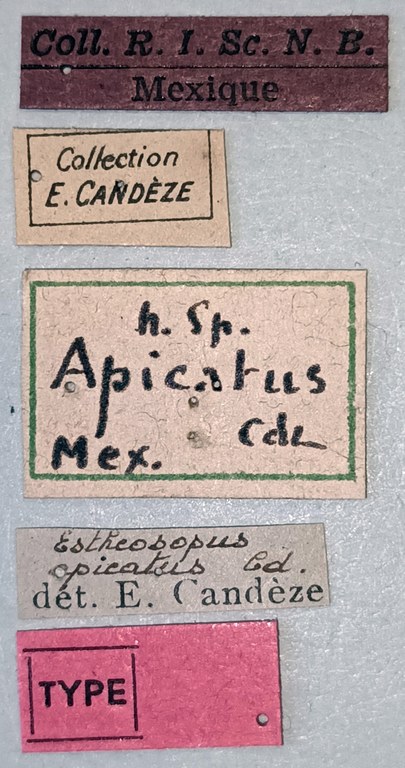 Coll. R. I. Sc. N. B.
Mexique
Collection
E. CANDÈZE
n. Sp.
Apicatus
Cdz
Mex.
Estheosopus
apicatus Cd.
dét. E. Candèze
TYPE